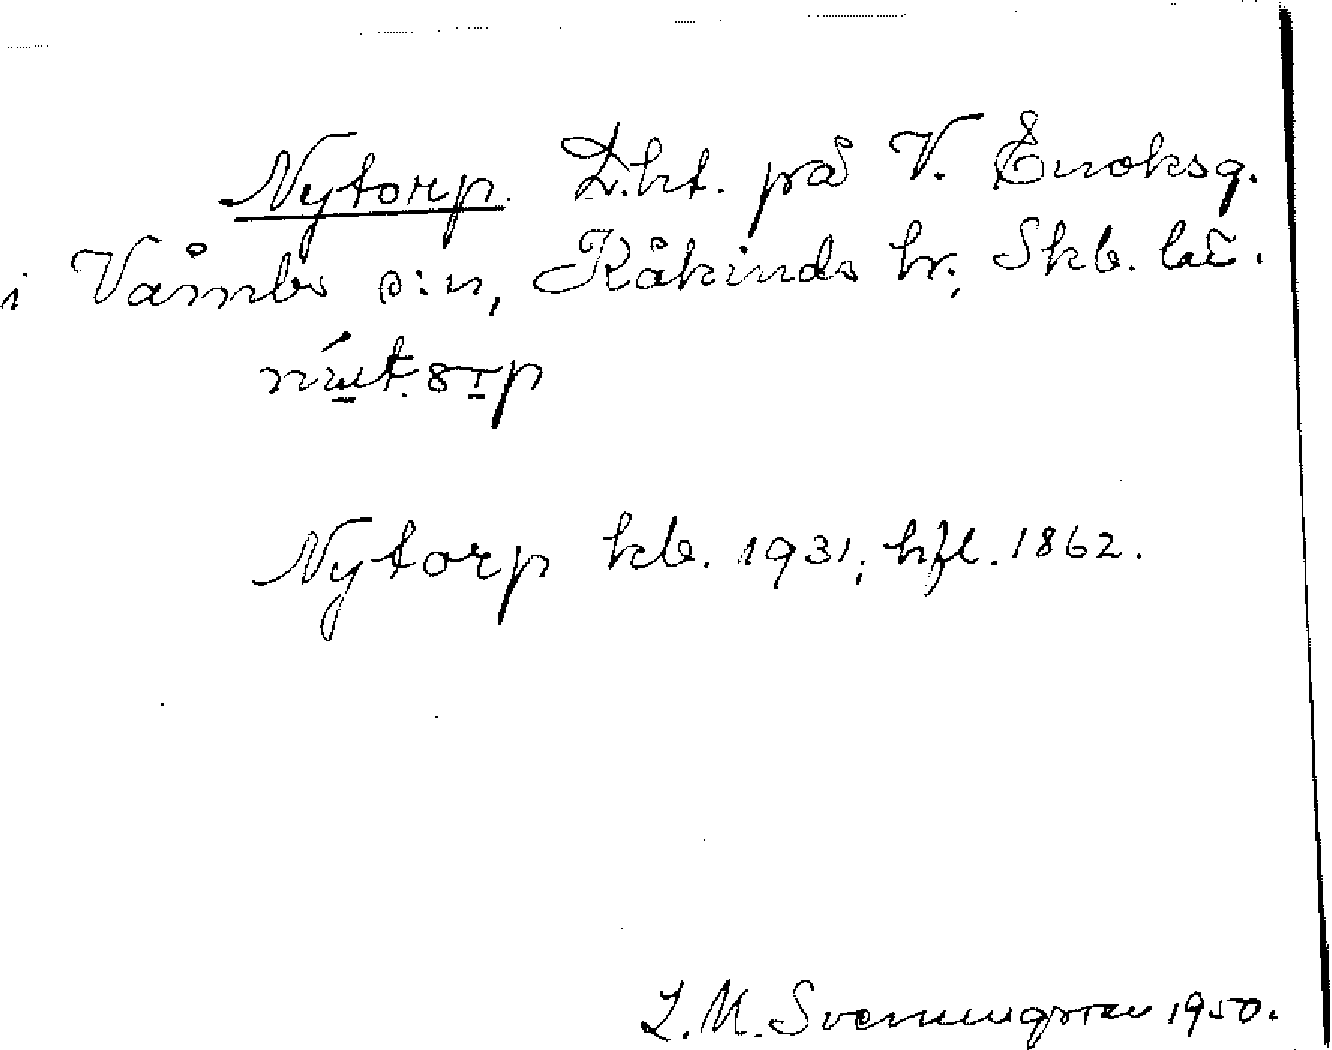 Nytorp. L.ht. på V. Enoksg.
i Våmbs s:n, Kåkinds hr, Skb. län.
Nytorp kb. 1931; hfl. 1862.
L. M. Svenungsson 1950.